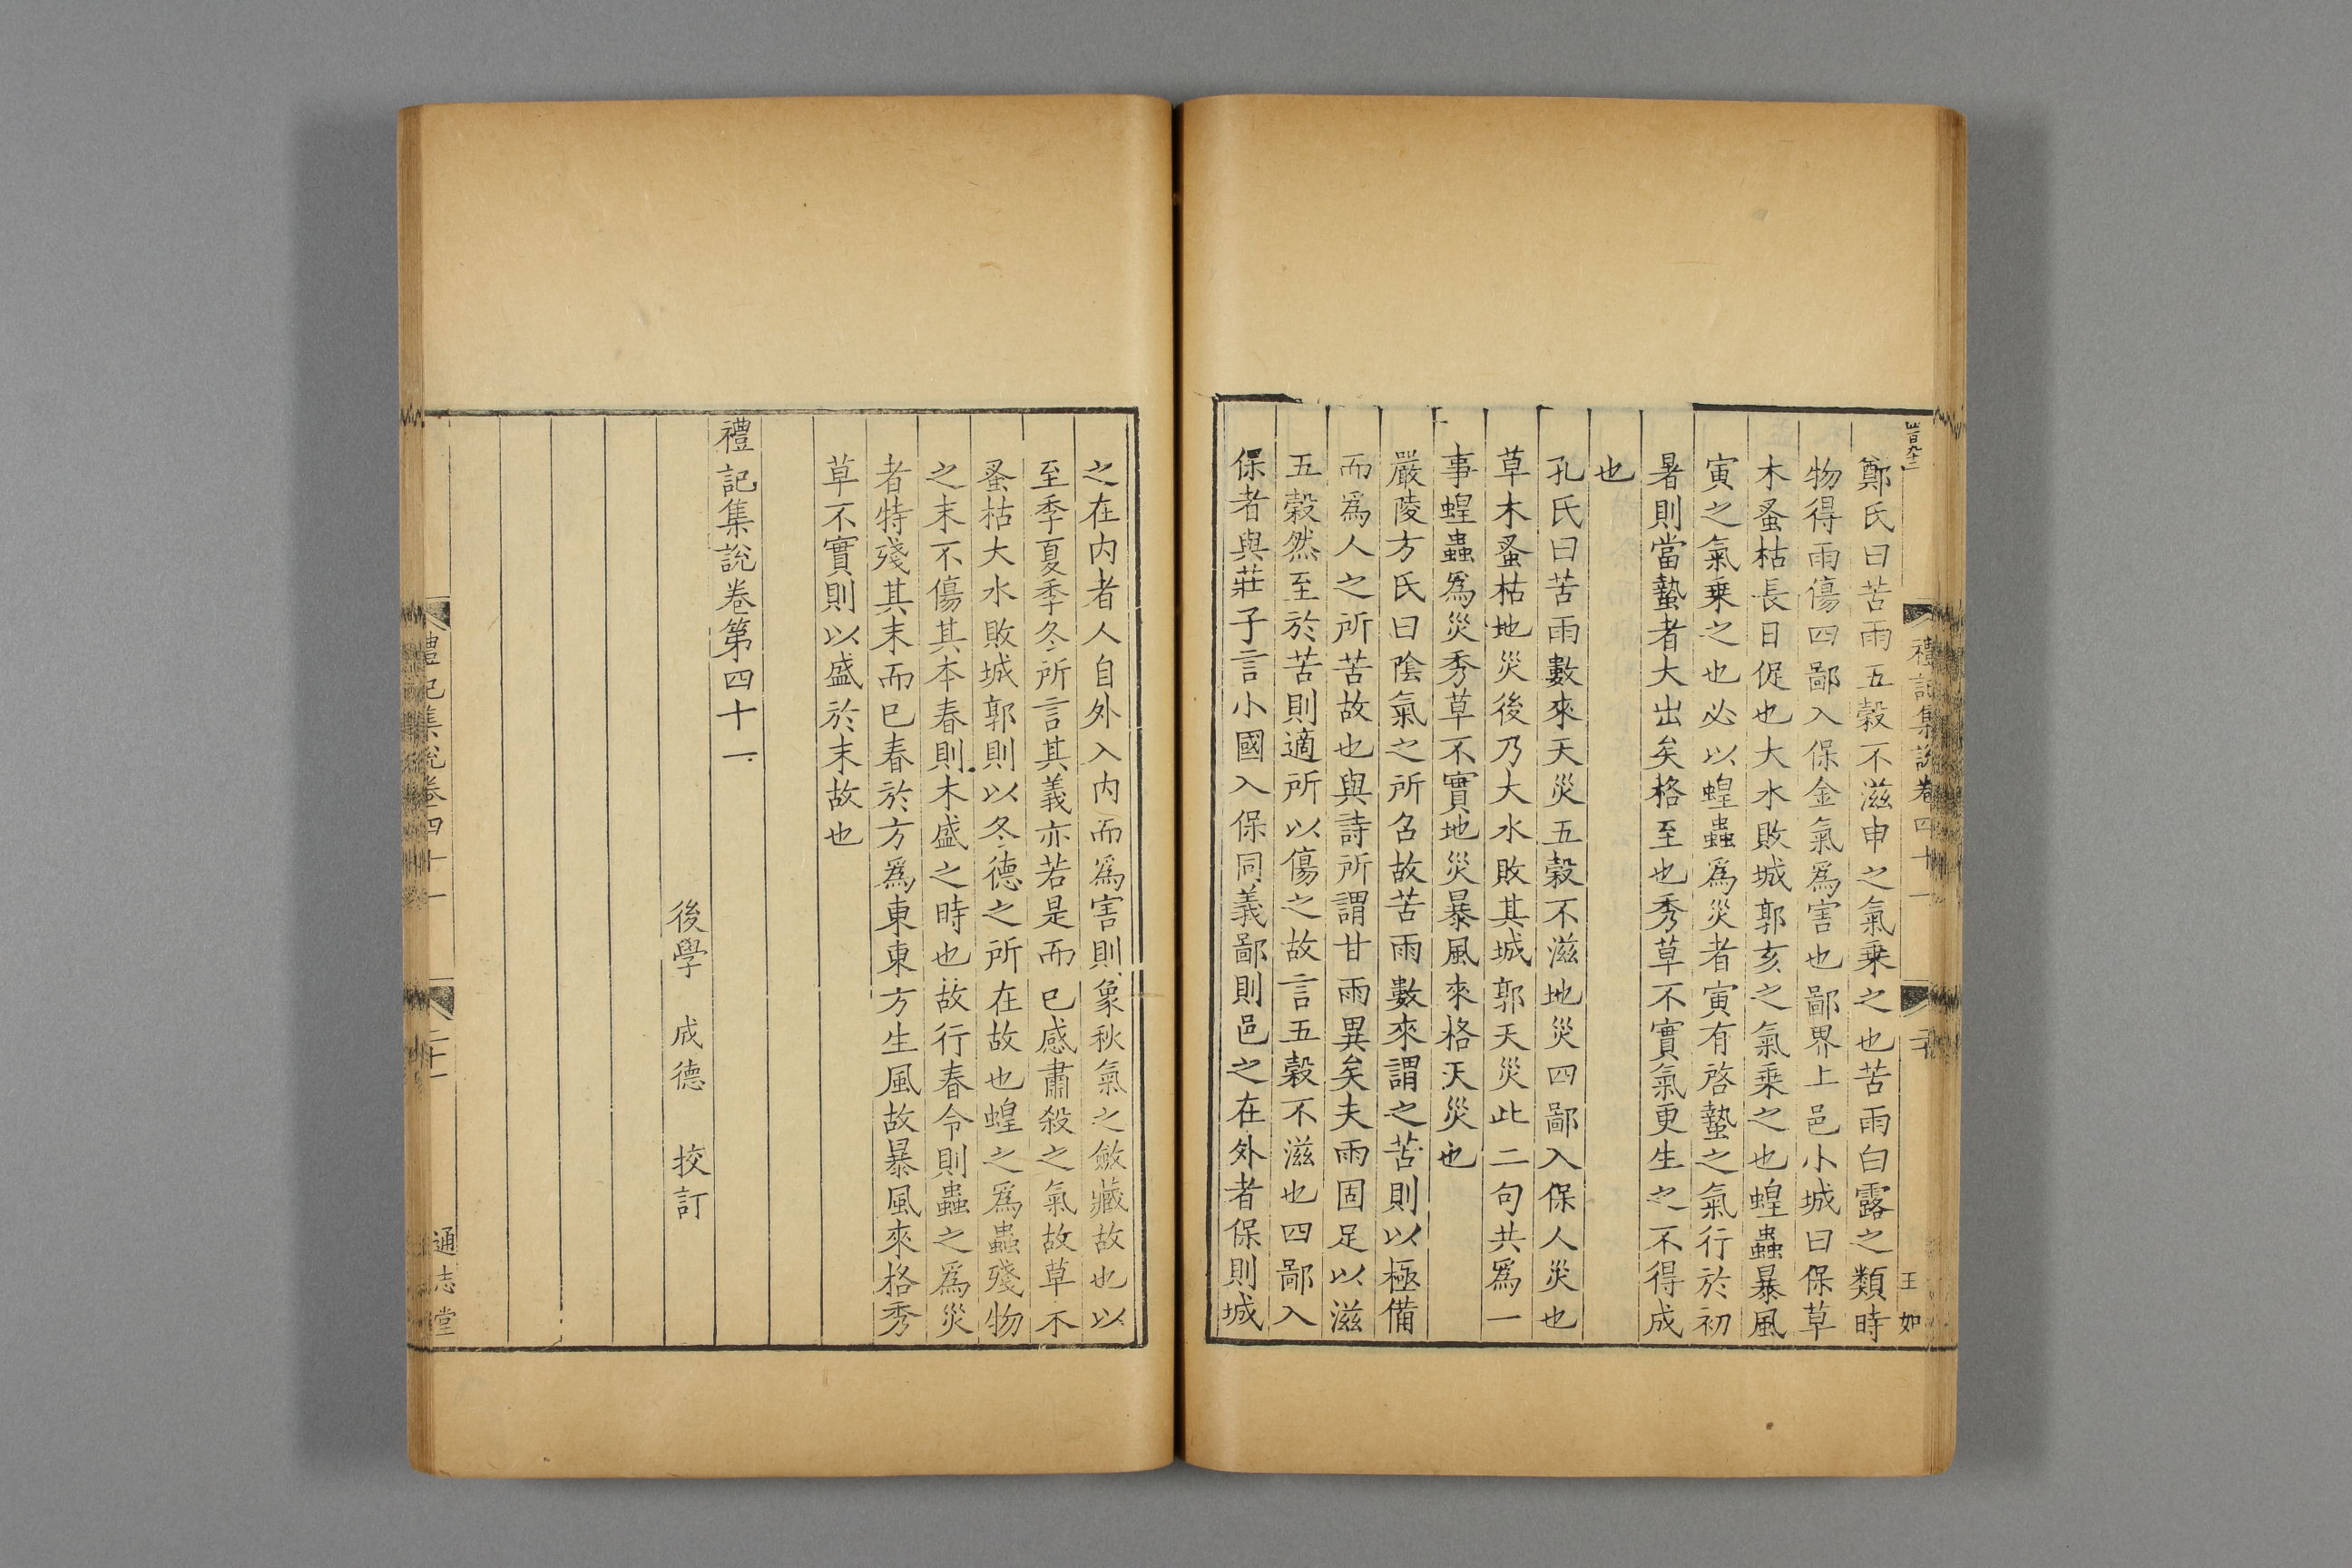 禮記集說卷四十一
王如
鄭氏曰苦雨五穀不滋申之氣乗之也苦雨白露之類時
物得雨傷四鄙入保金氣爲害也鄙界上邑小城曰保草
木蚤枯長日促也大水敗城郭亥之氣乗之也蝗蟲暴風
寅之氣乗之也必以蝗蟲爲災者寅有啓蟄之氣行於初
暑則當蟄者大出矣格至也秀草不實氣更生之不得成
也
孔氏曰苦雨數來天災五穀不滋地災四鄙入保人災也
草木蚤枯地災後乃大水敗其城郭天災此二句共爲一
事蝗蟲爲災秀草不實地災暴風來格天災也
嚴陵方氏曰陰氣之所召故苦雨數來謂之苦則以極備
而爲人之所苦故也與詩所謂甘雨異矣夫雨固足以滋
五穀然至於苦則適所以傷之故言五穀不滋也四鄙入
保者與莊子言小國入保同義鄙則邑之在外者保則城
之在内者人自外入内而爲害則象秋氣之斂藏故也以
至季夏季冬所言其義亦若是而已感肅殺之氣故草木
蚤枯大水敗城郭則以冬德之所在故也蝗之爲蟲殘物
之末不傷其本春則木盛之時也故行春令則蟲之爲災
者特殘其末而已春於方爲東東方生風故暴風來格秀
草不實則以盛於末故也
禮記集說卷第四十一
後學 成德 挍訂
禮記集說卷四十一
二十一
通志堂